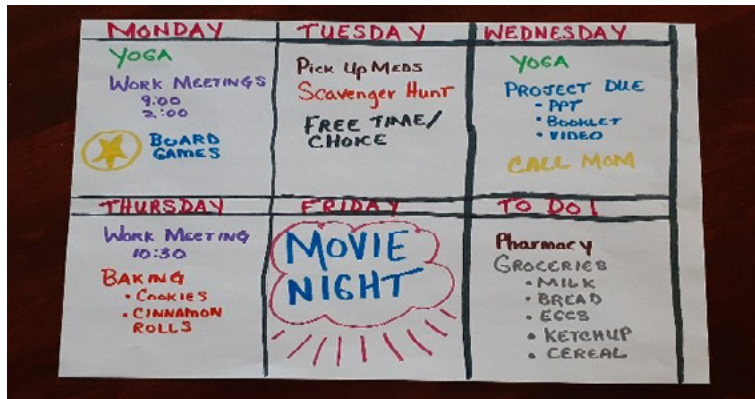 MONDAY
YOGA
WORK MEETINGS
9:00
2:00
BOARD
GAMES
TUESDAY
PICK UP MEDS
Scavenger Hunt
FREE TIME/
CHOICE
WEDNESDAY
YOGA
PROJECT DUE
- PPT
- BOOKLET
- VIDEO
CALL MOM
THURSDAY
WORK MEETING
10:30
BAKING
• COOKIES
• CINNAMON
ROLLS
FRIDAY
MOVIE
NIGHT
TO DO!
Pharmacy
GROCERIES
• MILK
• BREAD
• EGGS
• KETCHUP
• CEREAL